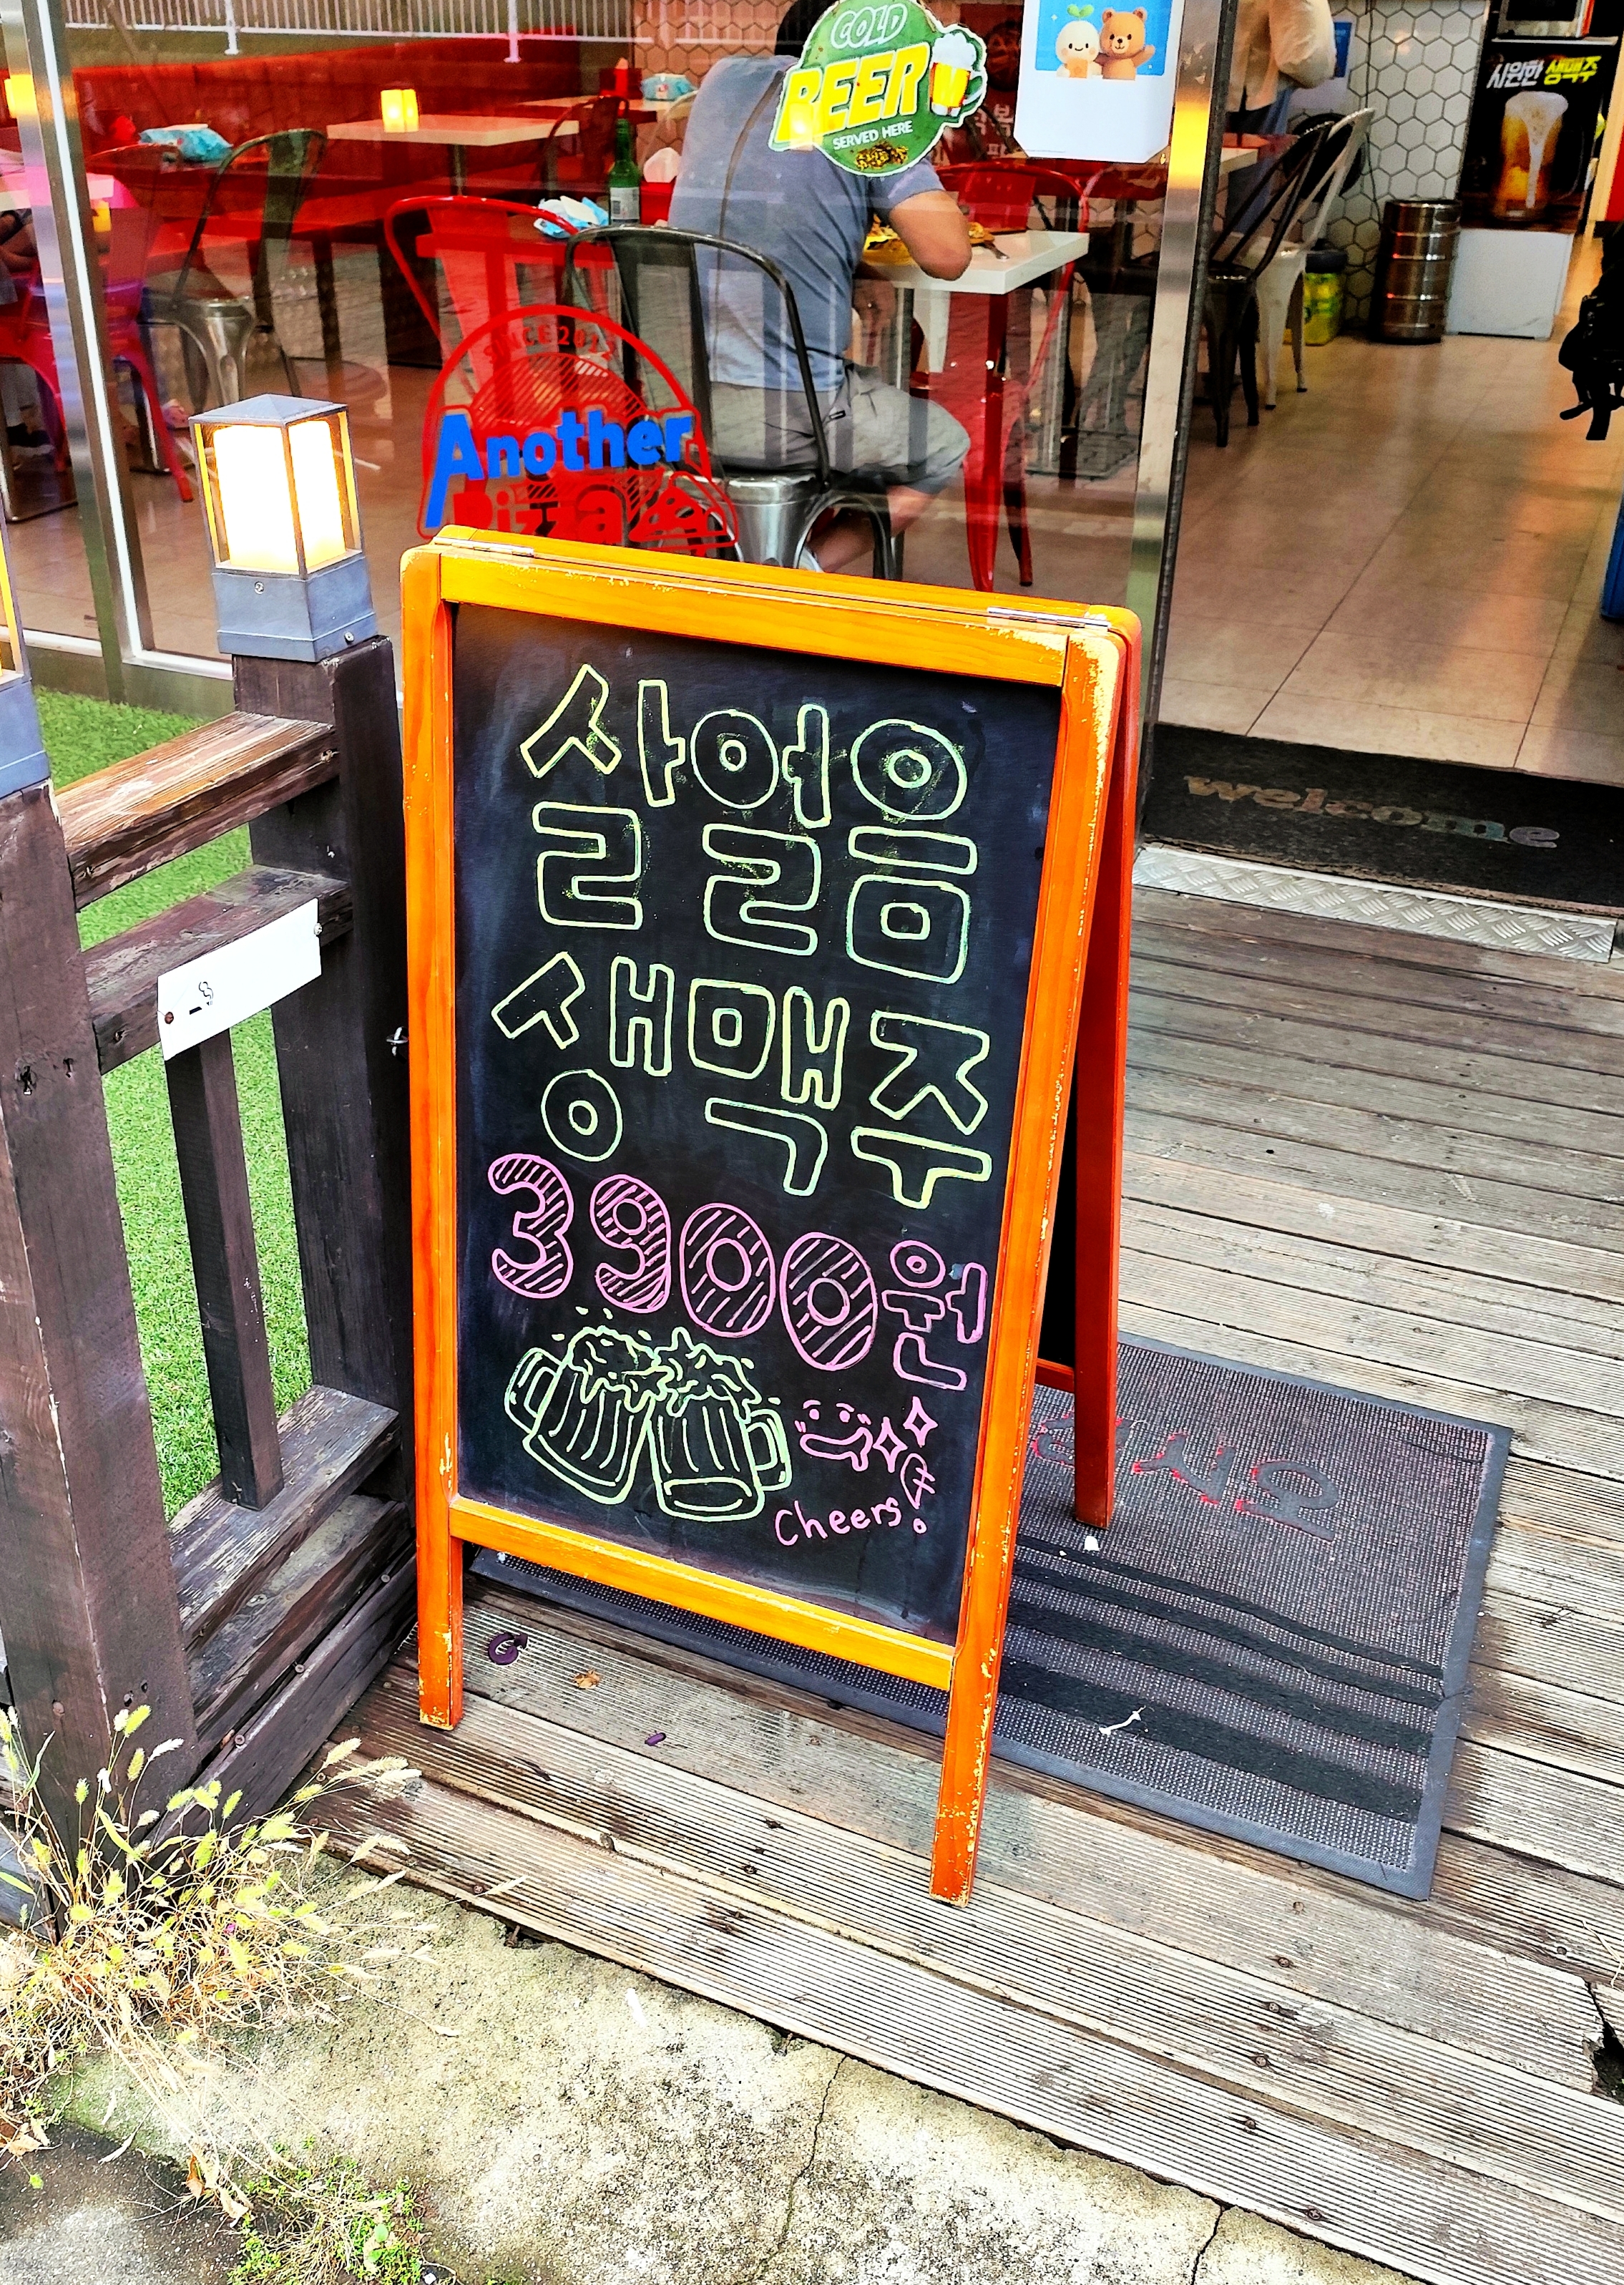 COLD
BEER
SERVED HERE
시원한 생맥주
SINCE 2012
Another
Pizza
welcome
살얼음
생맥주
3900원
Cheers!